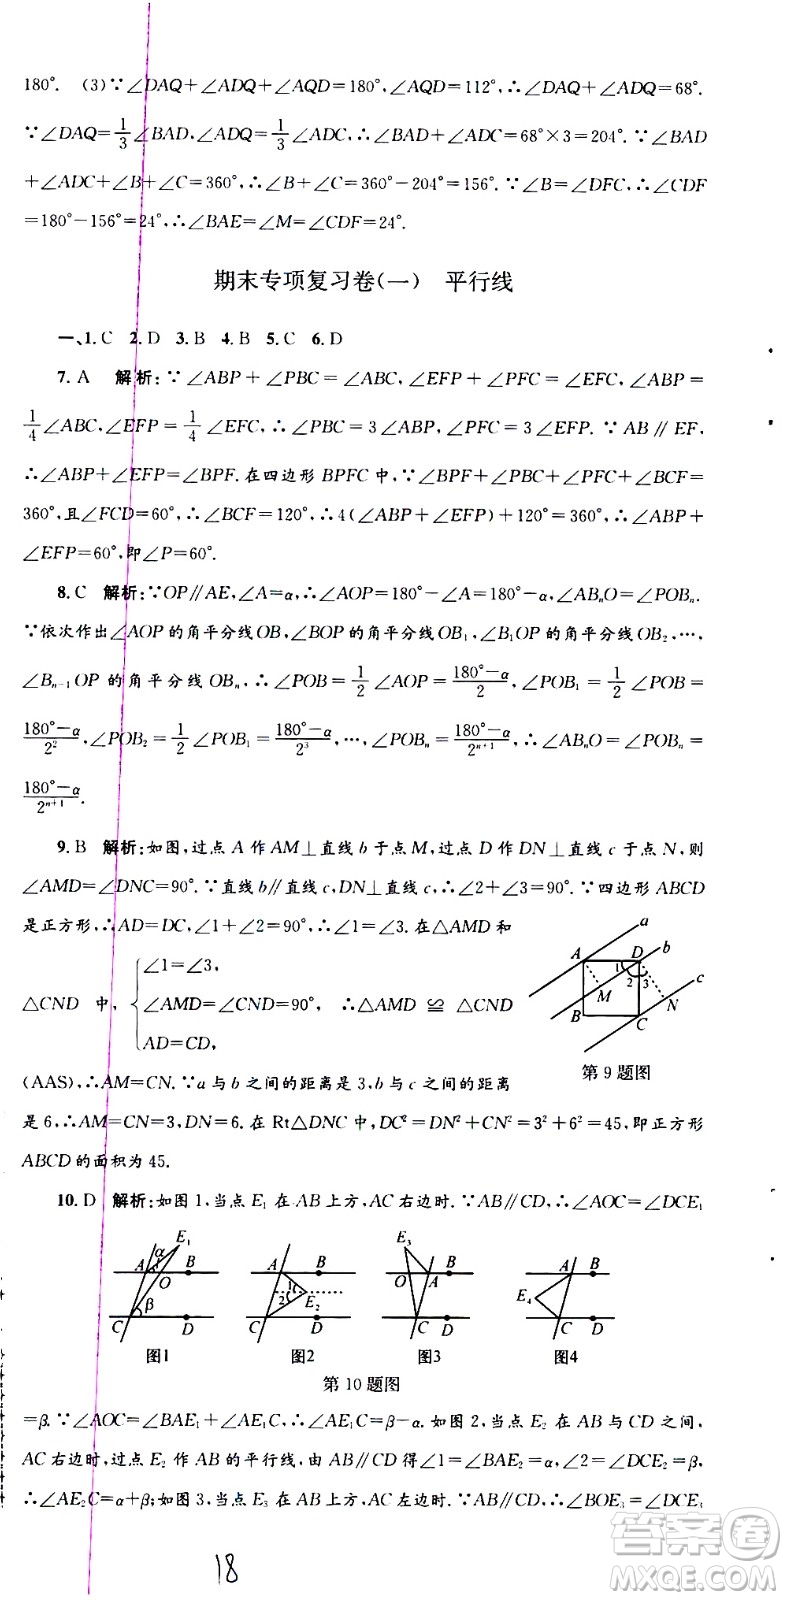 180°. (3)∵∠DAQ+∠ADQ+∠AQD=180°,∠AQD=112°,∴∠DAQ+∠ADQ=68°.
∵∠DAQ=1/3∠BAD,∠ADQ=1/3∠ADC,∴∠BAD+∠ADC=68°×3=204°. ∵∠BAD
+∠ADC+∠B+∠C=360°,∴∠B+∠C=360°-204°=156°. ∵∠B=∠DFC,∴∠CDF
=180°-156°=24°,∴∠BAE=∠M=∠CDF=24°.
期末专项复习卷(一) 平行线
一、1. C 2. D 3. B 4. B 5. C 6. D
7. A 解析:∵∠ABP+∠PBC=∠ABC,∠EFP+∠PFC=∠EFC,∠ABP=
1/4∠ABC,∠EFP=1/4∠EFC,∴∠PBC=3∠ABP,∠PFC=3∠EFP. ∵AB∥EF,
∴∠ABP+∠EFP=∠BPF. 在四边形BPFC中,∵∠BPF+∠PBC+∠PFC+∠BCF=
360°,且∠FCD=60°,∴∠BCF=120°,∴4(∠ABP+∠EFP)+120°=360°,∴∠ABP+
∠EFP=60°,即∠P=60°.
8. C 解析:∵OP∥AE,∠A=α,∴∠AOP=180°-∠A=180°-α,∠ABₙO=∠POBₙ.
∵依次作出∠AOP的角平分线OB,∠BOP的角平分线OB₁,∠B₁OP的角平分线OB₂,…,
∠Bₙ₋₁OP的角平分线OBₙ,∴∠POB=1/2∠AOP=(180°-α)/2,∠POB₁=1/2∠POB=
(180°-α)/2²,∠POB₂=1/2∠POB₁=(180°-α)/2³,…,∠POBₙ=(180°-α)/2ⁿ⁺¹,∴∠ABₙO=∠POBₙ=
(180°-α)/2ⁿ⁺¹.
9. B 解析:如图,过点A作AM⊥直线b于点M,过点D作DN⊥直线c于点N,则
∠AMD=∠DNC=90°. ∵直线b∥直线c,DN⊥直线c,∴∠2+∠3=90°. ∵四边形ABCD
是正方形,∴AD=DC,∠1+∠2=90°,∴∠1=∠3. 在△AMD和
△CND中,{∠1=∠3,
∠AMD=∠CND=90°, ∴△AMD≌△CND
AD=CD,
A D a b c 1 2 3 M N B C
第9题图
(AAS),∴AM=CN. ∵a与b之间的距离是3,b与c之间的距离
是6,∴AM=CN=3,DN=6. 在Rt△DNC中,DC²=DN²+CN²=3²+6²=45,即正方形
ABCD的面积为45.
10. D 解析:如图1,当点E₁在AB上方,AC右边时. ∵AB∥CD,∴∠AOC=∠DCE₁
E₁ α A O B β C D
图1
A B 1 2 E₂ C D
图2
E₃ O A B C D
图3
A B E₄ C D
图4
第10题图
=β. ∵∠AOC=∠BAE₁+∠AE₁C,∴∠AE₁C=β-α. 如图2,当点E₂在AB与CD之间,
AC右边时,过点E₂作AB的平行线,由AB∥CD得∠1=∠BAE₂=α,∠2=∠DCE₂=β,
∴∠AE₂C=α+β;如图3,当点E₃在AB上方,AC左边时. ∵AB∥CD,∴∠BOE₃=∠DCE₃
18
答案圈
MXQE.COM